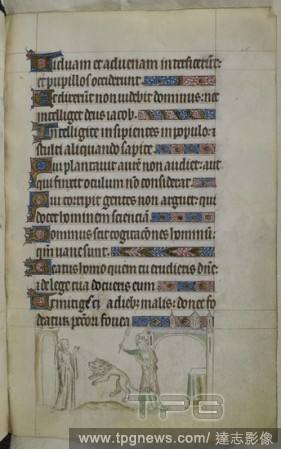 Viduam et advenam interfecerūt:
et pupillos occiderunt.
Et dixerunt non videbit dominus: nec
intelliget deus iacob.
Intelligite insipientes in populo: et
stulti aliquando sapite
Qui plantavit aurē non audiet: aut
qui finxit oculum nō considerat
Qui corripit gentes non arguet: qui
docet hominem scienciā
Dominus scit cogitacōnes hominū:
qm̄ vane sunt
Beatus homo quem tu erudieris dn̄e:
et de lege tua docueris eum
Ut mitiges ei a dieb; malis: donec fo
deatur pc̄cori fovea
TPG
www.tpgnews.com / 達志影像